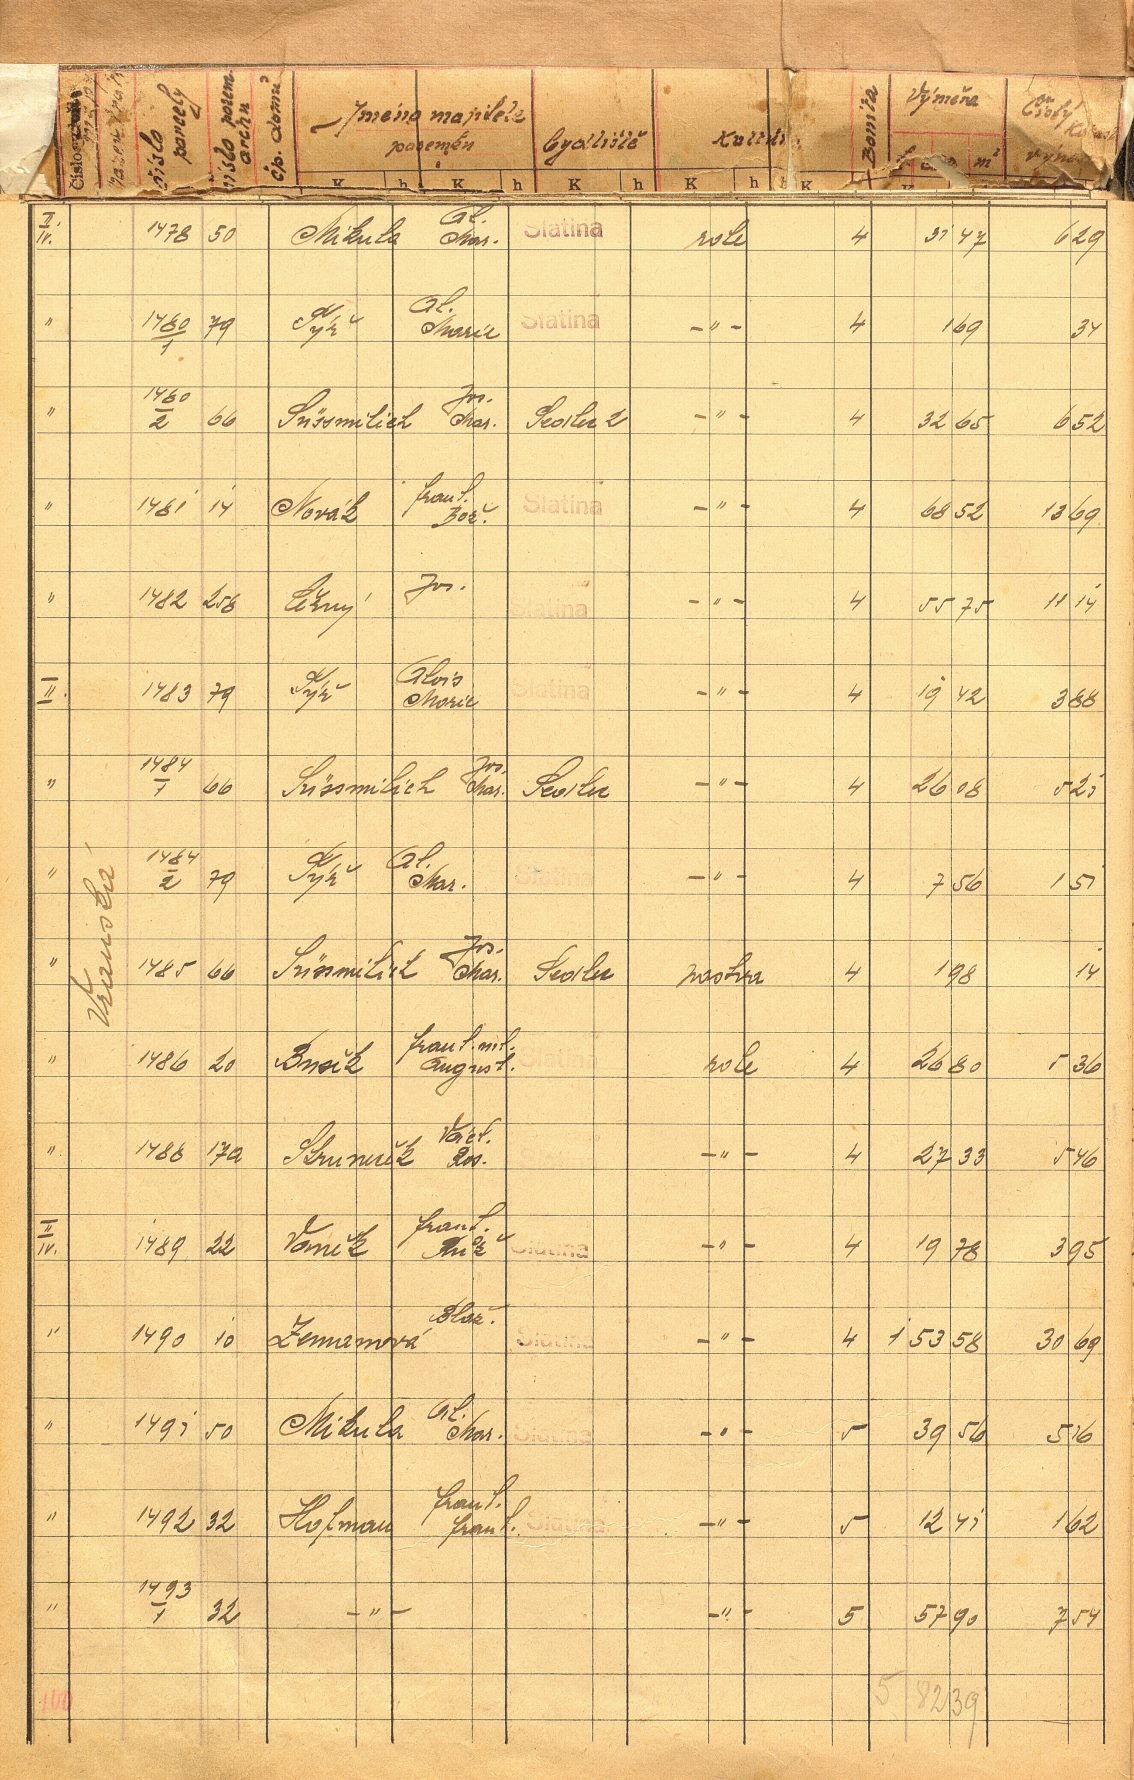 číslo parcely
číslo pozem. archu
čp. domu
Jméno majitele pozemku
Bydliště
Bonita
Výměra
Čistý
m²
K h K h K h K h K
II. IV. 1478 50 Mikula Al. Mar. Slatina role 4 31 47 6 29
" 1480/1 79 Al. Marie Slatina -"- 4 1 69 34
" 1480/2 66 Süssmilich Jos. Mar. Sedlec 2 -"- 4 32 65 6 52
" 1481 14 Novák Frant. Bož. Slatina -"- 4 68 52 13 69
" 1482 258 Jos. Slatina -"- 4 55 75 11 14
II. 1483 79 Alois Marie Slatina -"- 4 19 42 3 88
" 1484/1 66 Süssmilich Jos. Mar. Sedlec -"- 4 26 08 5 21
" 1484/2 79 Al. Mar. Slatina -"- 4 7 56 1 51
Vranská
" 1485 66 Süssmilich Jos. Mar. Sedlec pastva 4 1 98 14
" 1486 20 Frant. ml. August. Slatina role 4 26 80 5 36
" 1488 170 Vojt. Ros. -"- 4 27 33 5 46
II IV. 1489 22 Vaněk Frant. Slatina -"- 4 19 78 3 95
" 1490 10 Zemanová Blaž. Slatina -"- 4 1 53 58 30 69
" 1491 50 Mikula Al. Mar. Slatina -"- 5 39 56 5 16
" 1492 32 Hofman Frant. Frant. Slatina -"- 5 12 41 1 62
" 1493/1 32 -"- -"- 5 57 90 7 54
100 5 82 39